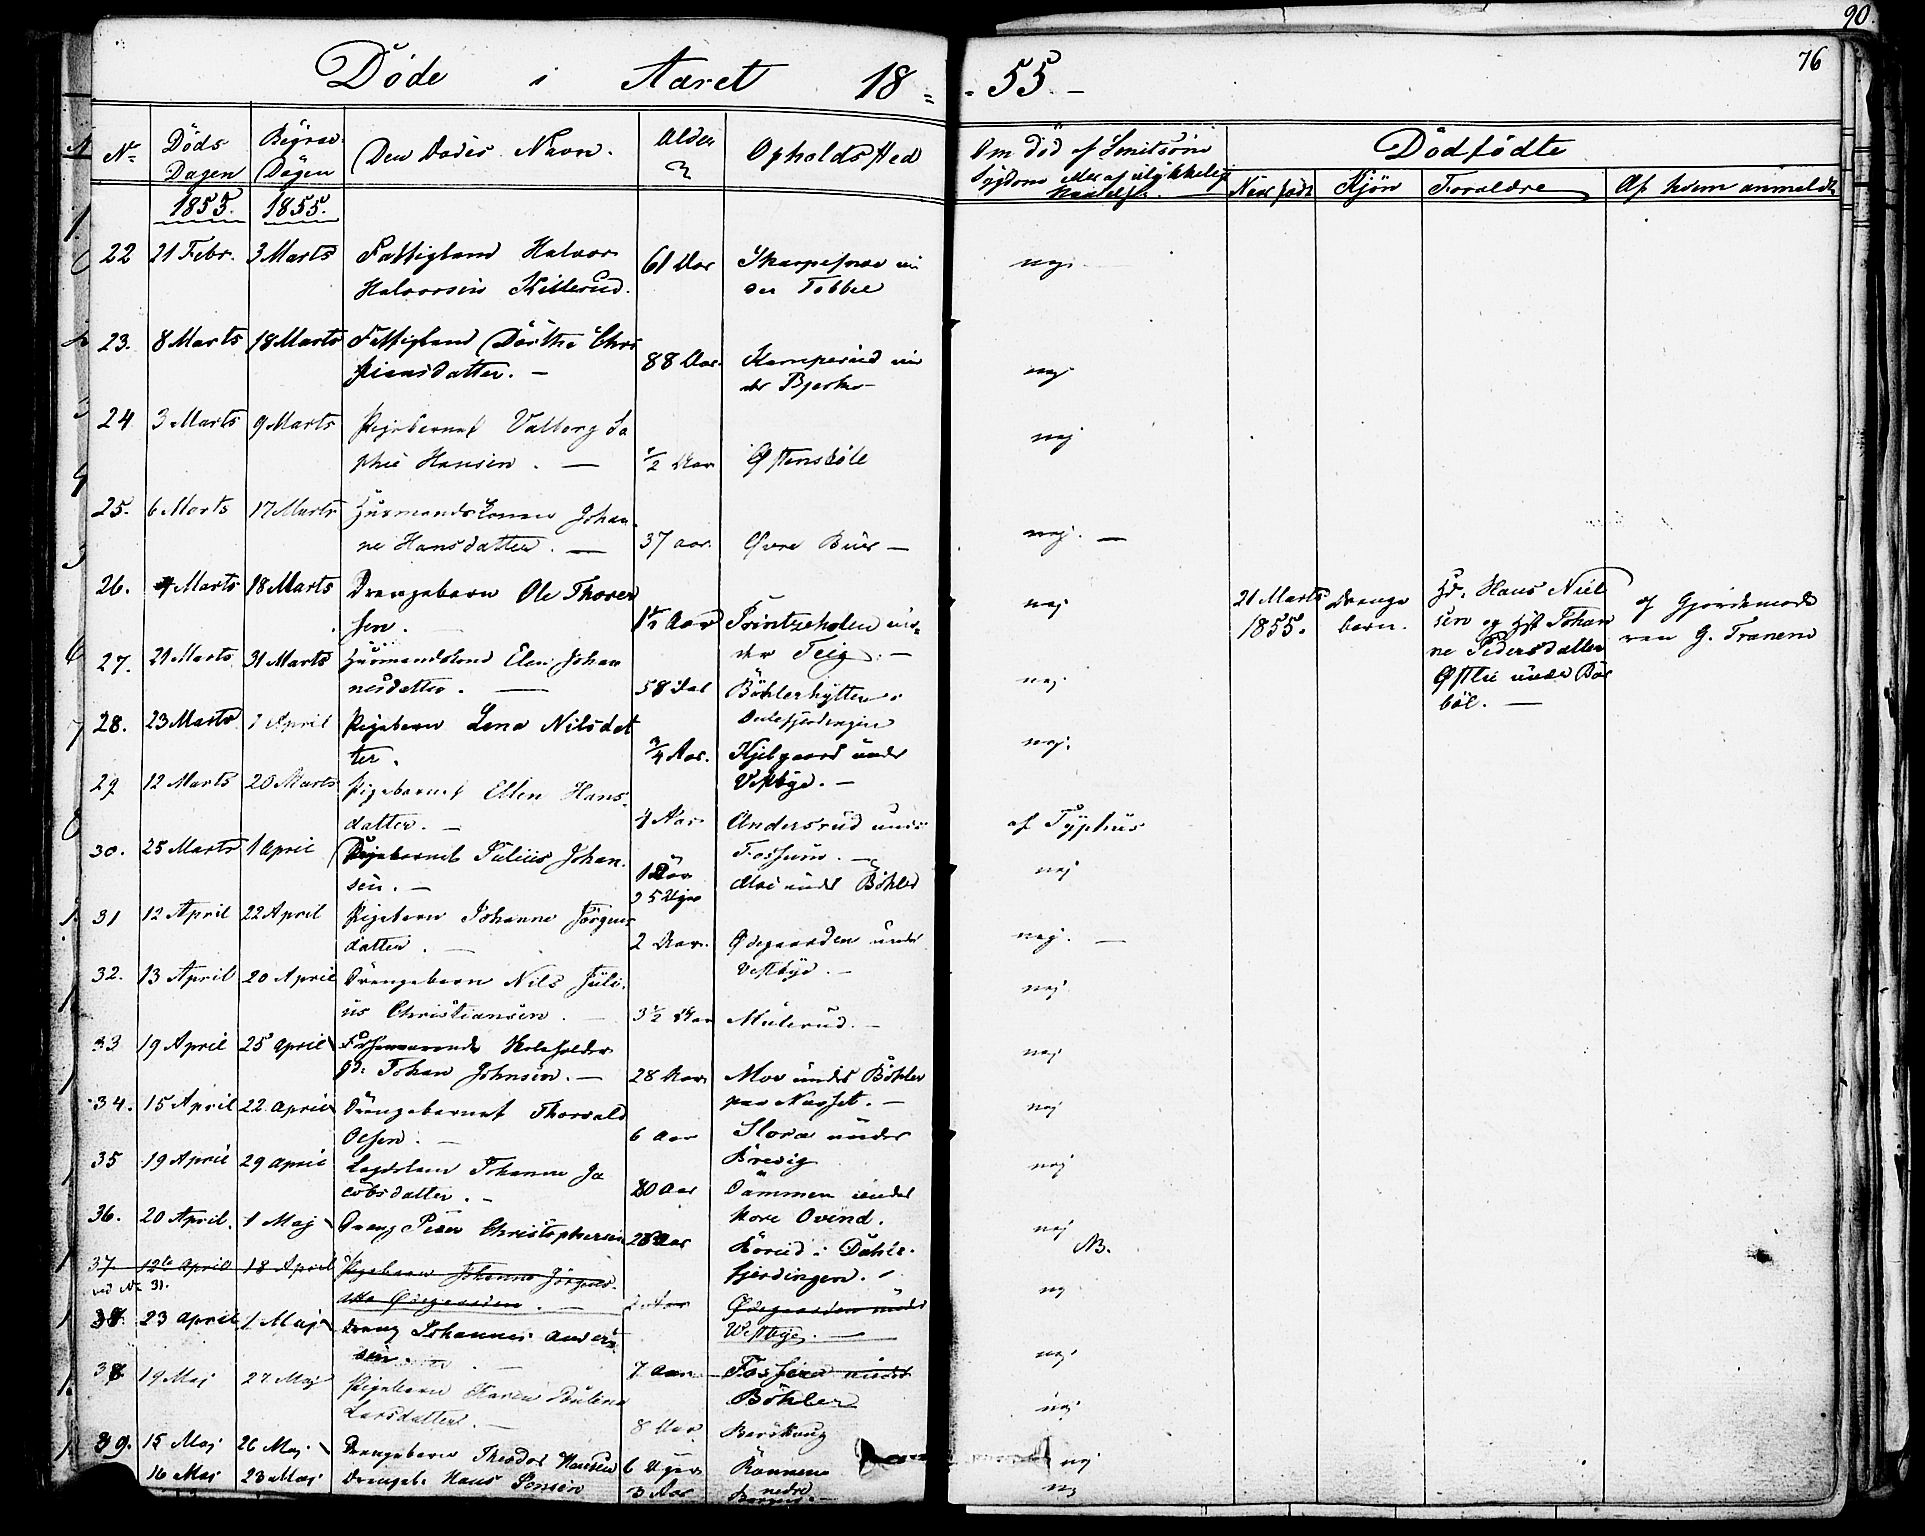 90
76
Döde i Aaret 18 = = 55. -
No Döds Dagen Begrav. Dagen Den Dödes Navn. Alder Opholds Sted Om död af Smitsom Sygdom eller af ulykkelig Hændelse. Dödfödte
Naar födt Kjön Forældre Af hvem anmeldt
1855. 1855.
22 21 Febr. 3 Marts Fattiglem Halvor
Halvorsen Killerud. 61 Aar under Tobbel nej
23. 8 Marts 18 Marts Fattiglem Dorthe Chri
stiansdatter. - 88 Aar. Kamperud un
der Bjerke- nej
24 3 Marts 9 Marts Pigebarnet Valborg So
phie Hansen. - 1/2 Aar Østensböle nej
25. 6 Marts 17 Marts Huusmandskonen Johan-
ne Hansdatter. - 37 aar. Øvre Buer - nej. -
26. 4 Marts 18 Marts Drengebarn Ole Thover
sen. 1 1/2 Aar Printzeholen un-
der Teig. - nej
21 Marts 1855. Drenge barn. Hans Niel
sen og Johan
ne Pedersdatter
Østlie under Böe
böl. -
af Gjordemode
ren G. Tranem
27. 21 Marts 31 Marts Huusmandskone Elen Johan
nesdatter. - 58 Aar Böhlerhytten i
nej
28. 23 Marts 1 April Pigebarn Lena Nilsdat
ter. 3/4 Aar. Kjelgaard under
Vestbye. - nej.
29 12 Marts 20 Marts Pigebarnet Ellen Hans-
datter. - 4 Aar Andersrud under
Fossum. - af Typhus
30. 25 Marts 1 April Julius Johan-
sen. - 1 Aar
25 Uger Moe under Böhler nej
31 12 April 22 April Pigebarn Johanne Jörgens
datter. - 2 Aar. Ødegaarden under
Vestbye. - nej. -
32. 13 April 20 April Drengebarn Nils Juli-
us Christiansen. 3 1/2 Aar Mulerud. - nej
33 19 April 25 April Johan Johnsen. - 28 Aar. Moe under Böhler
paa Næsset. - nej
34. 15 April 22 April Drengebarnet Thorvald
Olsen. - 6 Aar Slora under
Brevig nej
35 19 April 29 April Lægdslem Johanne Ja
cobsdatter. - 80 Aar Dammen under
Nore Ovind. nej
36. 20 April. 1 Maj Dreng Peder Christophersen Börud i Dahle-
fjerdingen. nej
NB.
37 12te April 18 April Pigebarn Johanne Jörgens-
datter Ødegaarden. - 2 Aar Ødegaarden under
Westbye. - nej
ved No 31.
38. 23 April 1 Maj Dreng Johannes Anders-
sen. 7 Aar Fossene under
Böhler nej
38 19 Maj 27 Maj Pigebarn Karen Pauline
Larsdatter. - 8 Aar nej
39. 15 Maj 26 Maj Drengebarn Theodor Hansen 6 Uger Rönnene nej
16 Maj 23 Maj Drengeb. Hans Jensen 3 Aar nedre nej